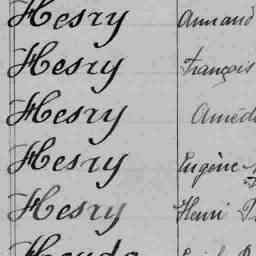 Hesry Armand
Hesry François
Hesry Améd
Hesry Eugène
Hesry Henri